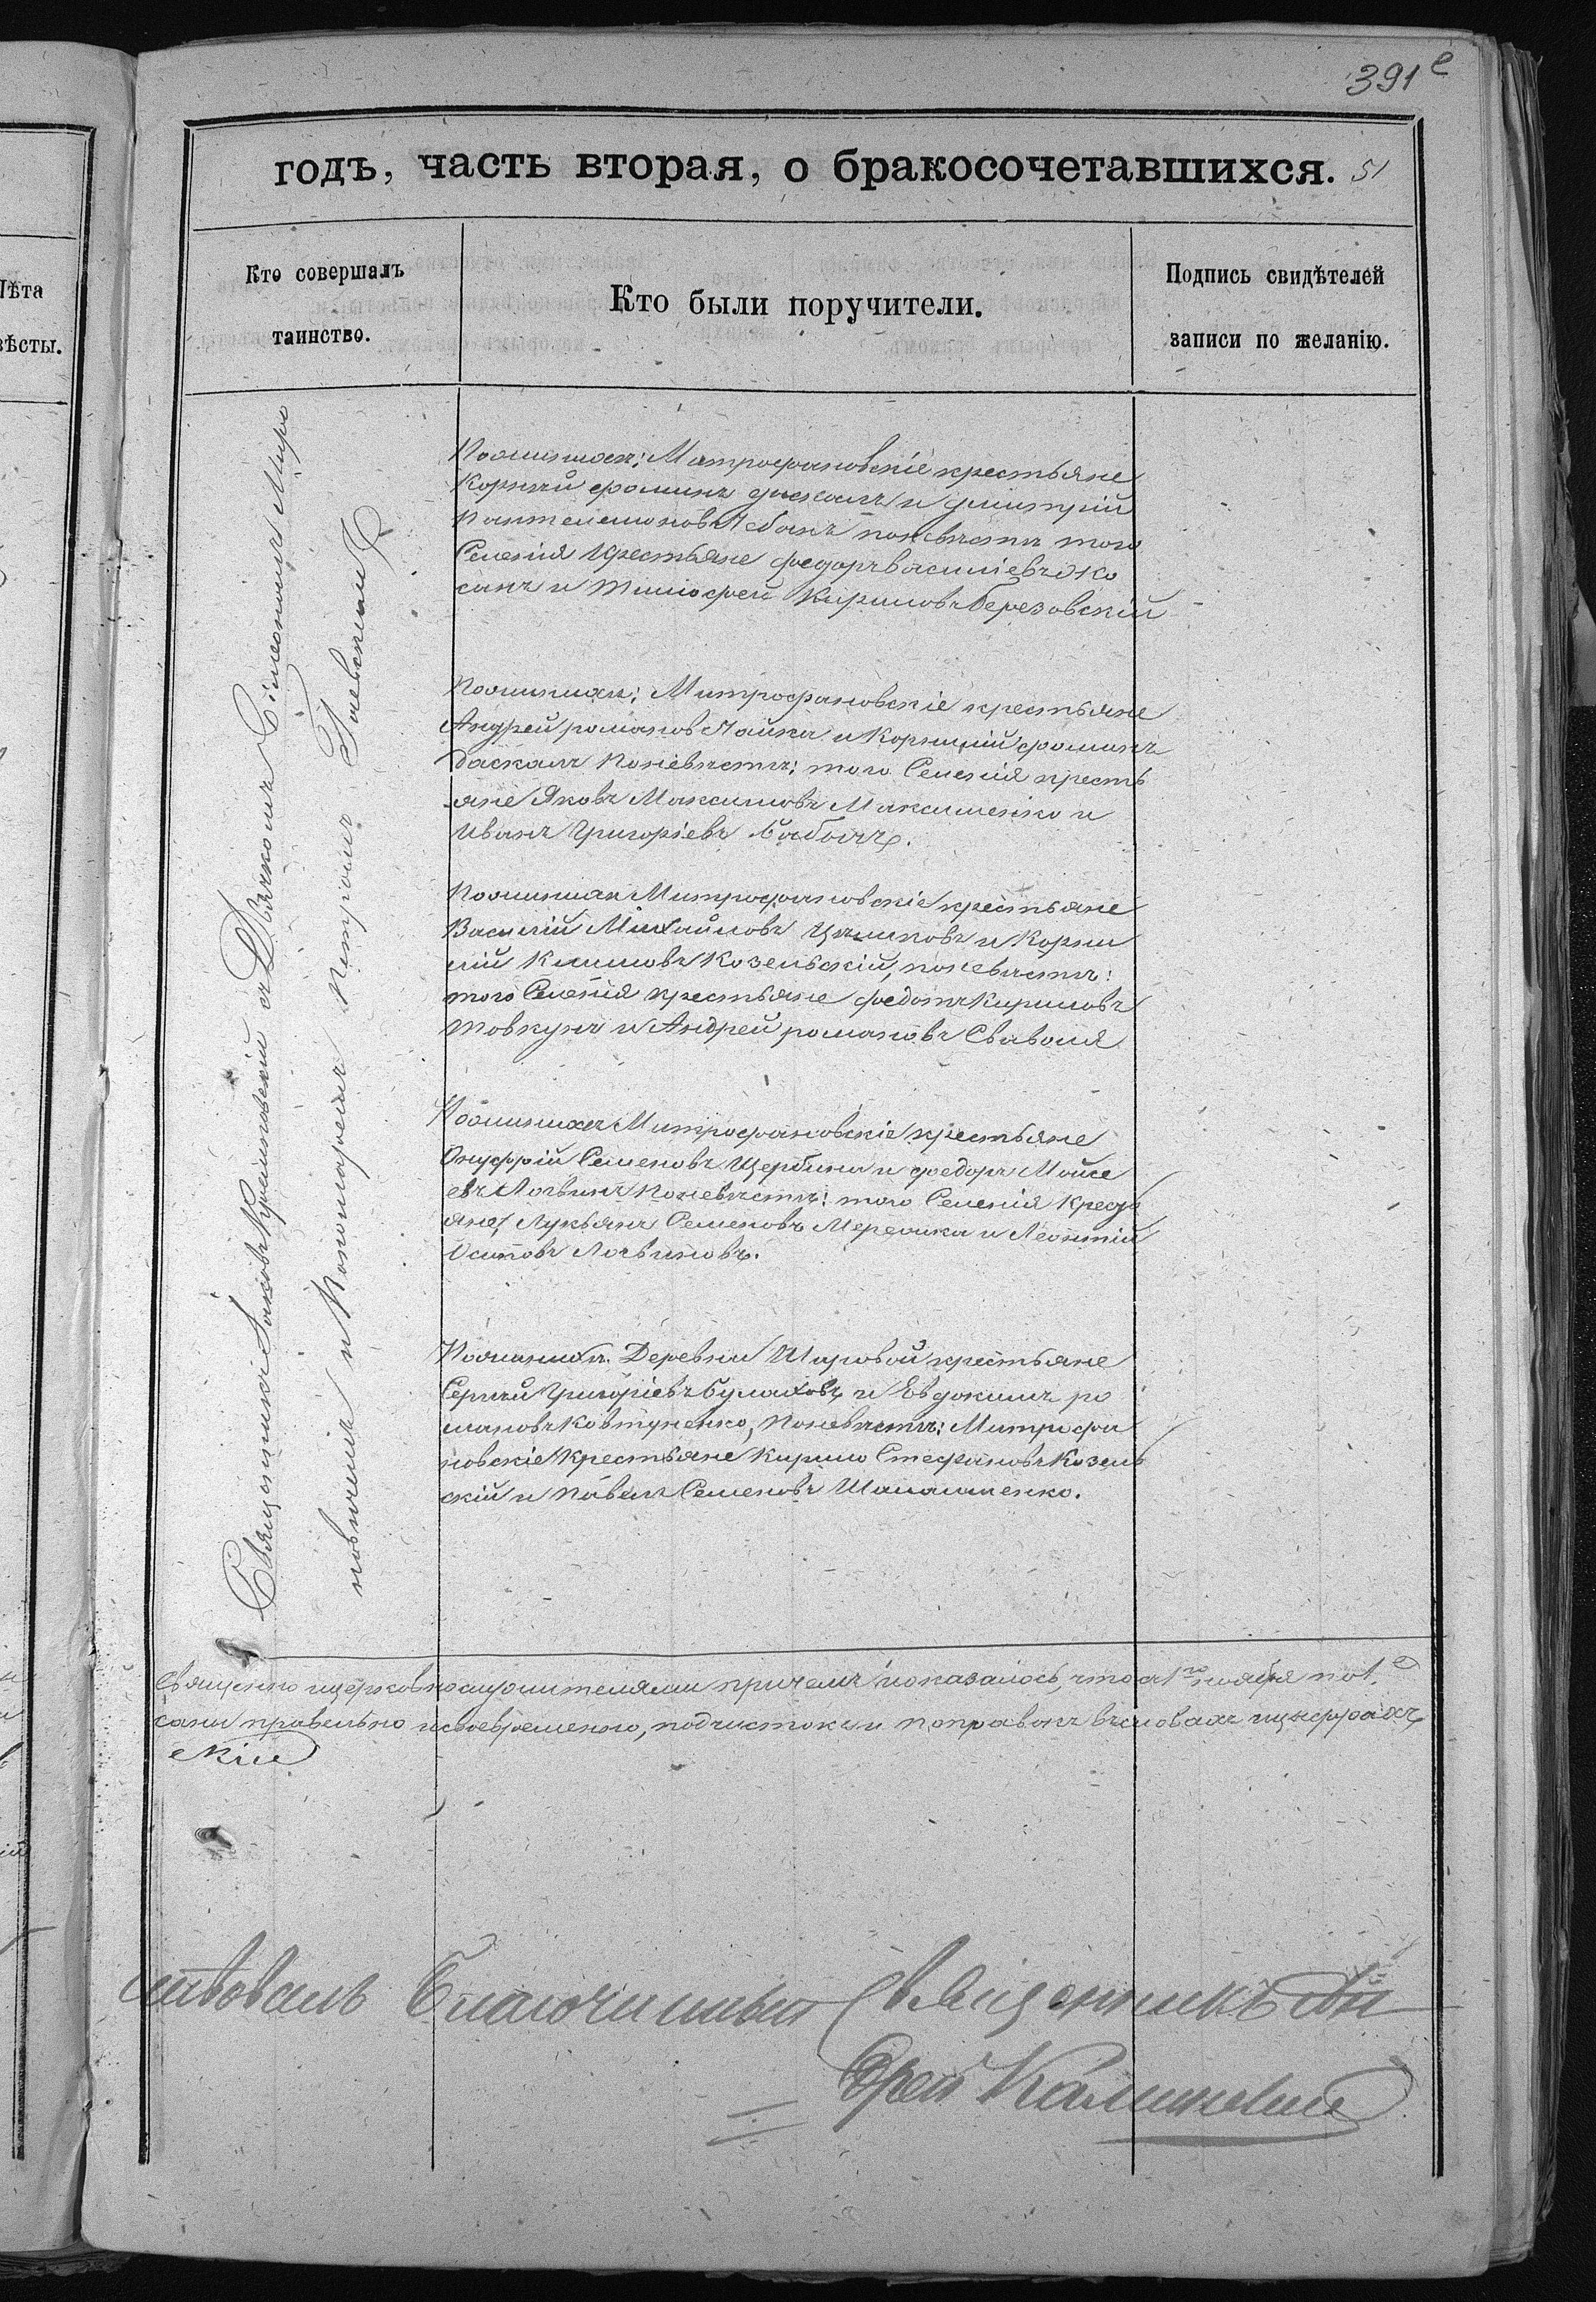 391
годъ, часть вторая, о бракосочетавшихся. 51
Лѣта
вѣсты.
Кто совершалъ
таинство.
Кто были поручители.
Подпись свидѣтелей
записи по желанію.
Священникъ Іаковъ съ Дьячкомъ Симеономъ Миро
новичемъ и Пономаремъ Петромъ Гаевскимъ
Митрофановскіе крестьяне
Корнилій Фоминъ и Димитрій
Пантелеимоновъ поневѣстѣ того
Селенія Крестьяне Федоръ Васильевъ Ко
санъ и Тимофей Кириловъ Березовскій
Поженихѣ: Митрофановскіе крестьяне
Андрей романовъ Чайка и Корнилій Фоминъ
Даскалъ Поневѣстѣ: того Селенія кресть
яне Яковъ Максимовъ Максименко и
Иванъ Григоріевъ Бабакъ.
Поженихѣ Митрофановскіе крестьяне
Василій Михайловъ и Корни
лій Климовъ Козельскій, поневѣстѣ:
того Селенія крестьяне Федотъ Кириловъ
Товкунъ и Андрей романовъ Сваволя
Поженихѣ Митрофановскіе крестьяне
Онуфрій Семеновъ Щербина и Федоръ Мойсе
евъ Логвинъ Поневѣстѣ: того Селенія Кресть
яне, Лукьянъ Семеновъ и Леонтій
Осиповъ Логвиновъ.
Поженихѣ. Деревни Шаровой крестьяне
Сергій Григоріевъ Булаховъ и Евдокимъ ро
мановъ Ковтуненко, Поневѣстѣ: Митрофа
новскіе Крестьяне Кирило Стефановъ Козель
скій и Павелъ Семеновъ
Священно церковнослужителями причемъ показалось, что съ 1го ноября по 1.
саны правильно и своевременно, подчистокъ и поправокъ въ словахъ и цыфрахъ
скій
ствовалъ Благочинный Священникъ Ан
дрей